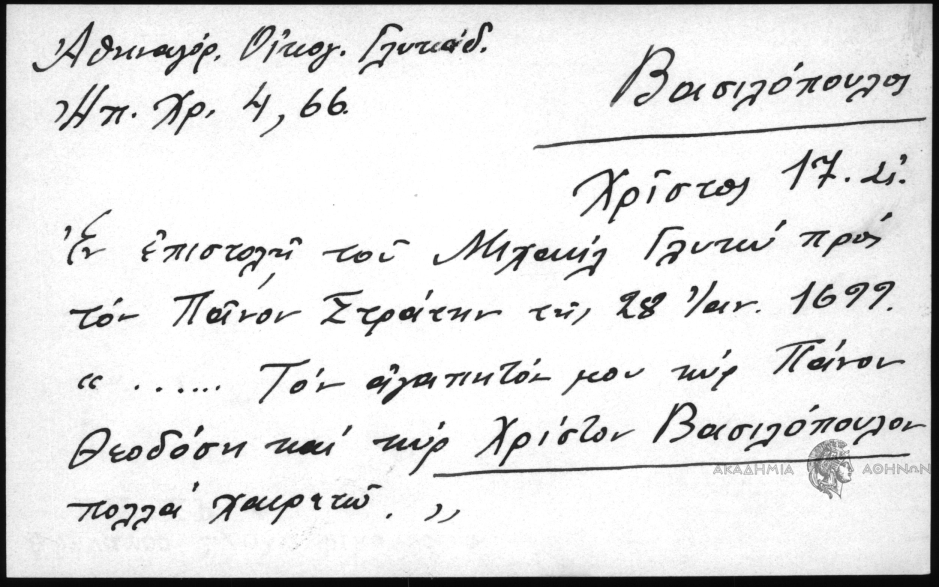 Ἀθηναγόρ. Οἰκογ. Γλυκάδ.
Ἠπ. Χρ. 4, 66.
Βασιλόπουλος
Χρῖστος 17. αἰ.
Ἐν ἐπιστολῇ τοῦ Μιχαήλ Γλυκύ πρός
τόν Πᾶνον Στράτην τῆς 28 Ἰαν. 1699.
“ ...... Τόν ἀγαπητόν μου κύρ Πάνον
Θεοδόση καί κύρ Χρίστον Βασιλόπουλον
πολλά χαιρετῶ. „
ΑΚΑΔΗΜΙΑ ΑΘΗΝΩΝ